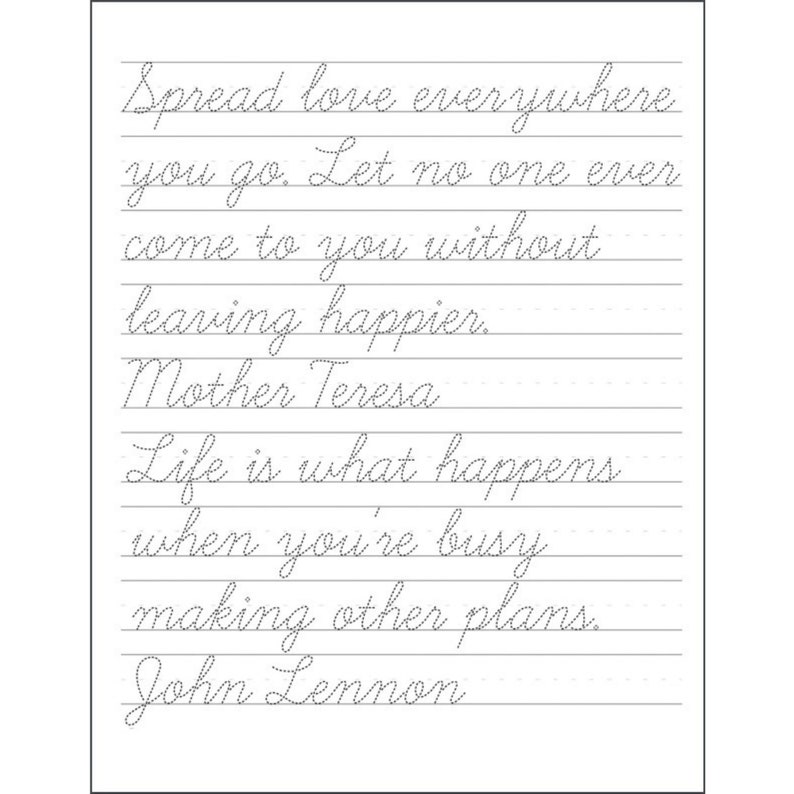 Spread love everywhere
you go. Let no one ever
come to you without
leaving happier.
Mother Teresa
Life is what happens
when you're busy
making other plans.
John Lennon